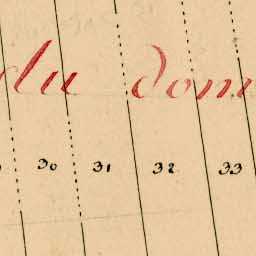 du dom
30 31 32 33